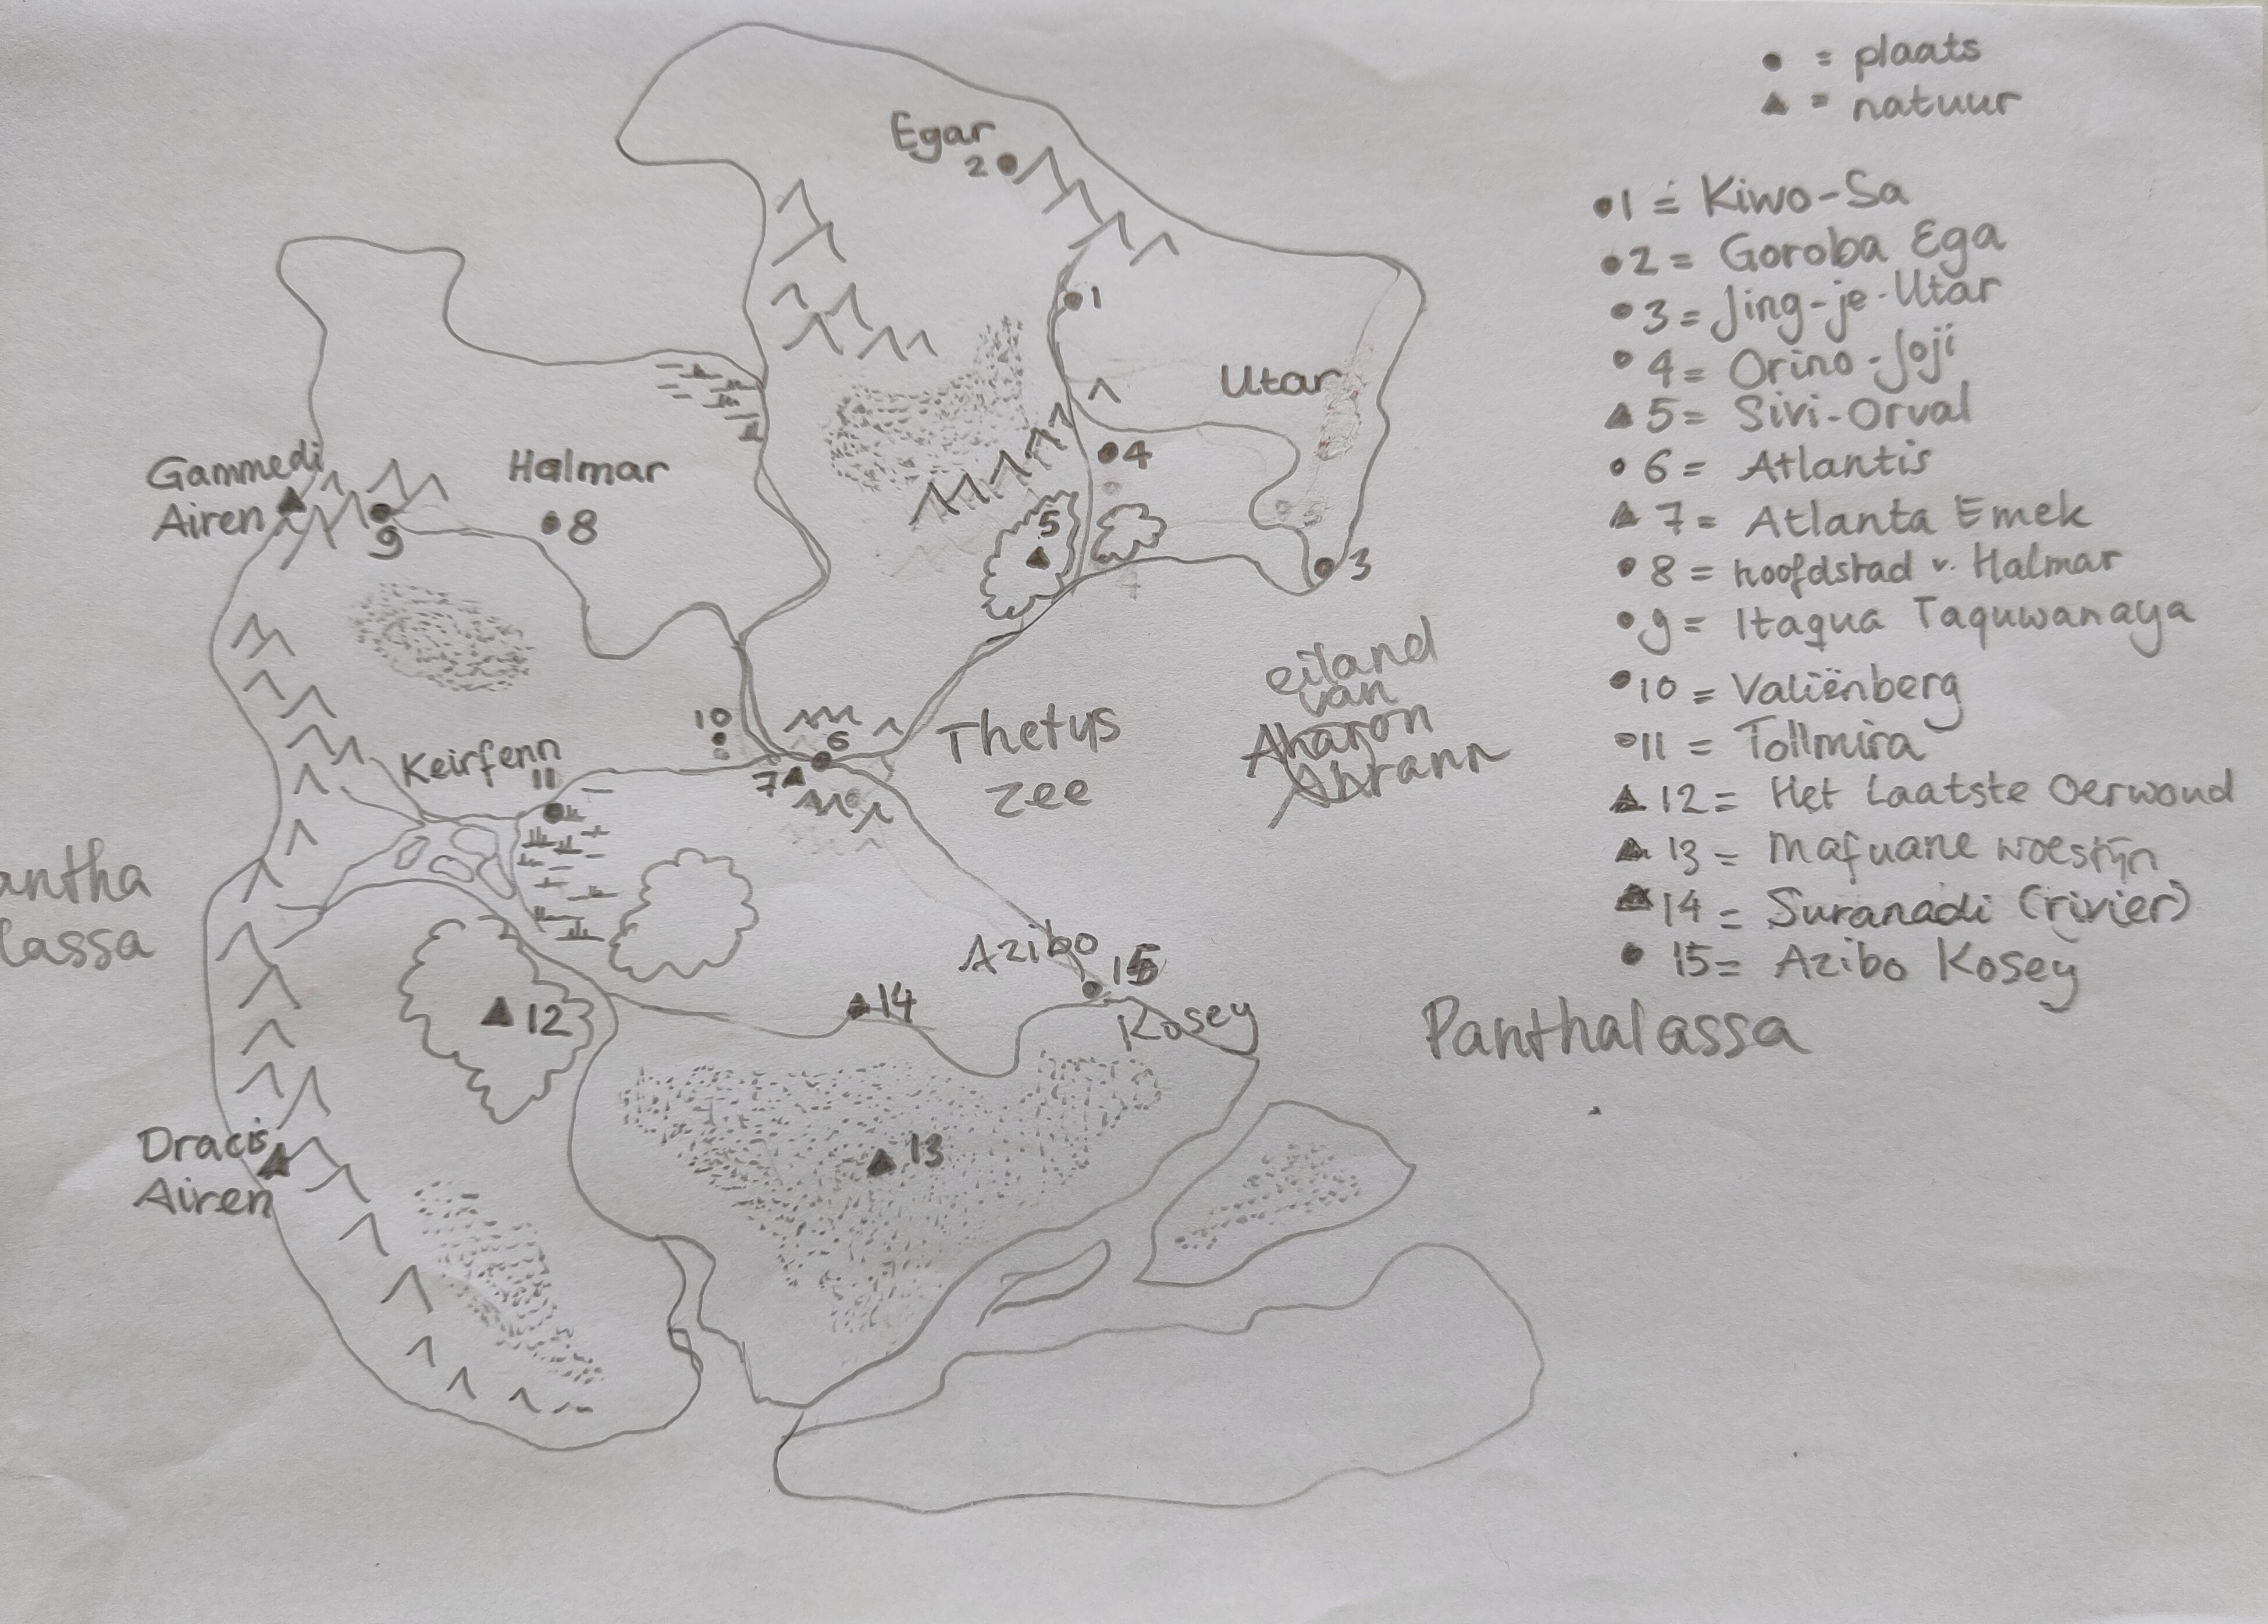 • = plaats
▲ = natuur
Egar
2
•1 = Kiwo-Sa
•2 = Goroba Ega
•3 = Jing-je-Utar
•4 = Orino-Joji
▲5 = Sivi-Orval
•6 = Atlantis
▲7 = Atlanta Emek
•8 = hoofdstad v. Halmar
•9 = Itaqua Taquwanaya
•10 = Valiënberg
•11 = Tollmira
▲12 = Het Laatste Oerwoud
▲13 = Mafuane woestijn
▲14 = Suranadi (rivier)
•15 = Azibo Kosey
1
Utar
4
Gammedi
Airen
Halmar
9
8
5
3
eiland
van
Aharon
Abrann
10
6
Thetys
zee
7
Keirfenn
11
antha
lassa
Azibo
15
Kosey
14
12
Panthalassa
13
Dracis
Airen